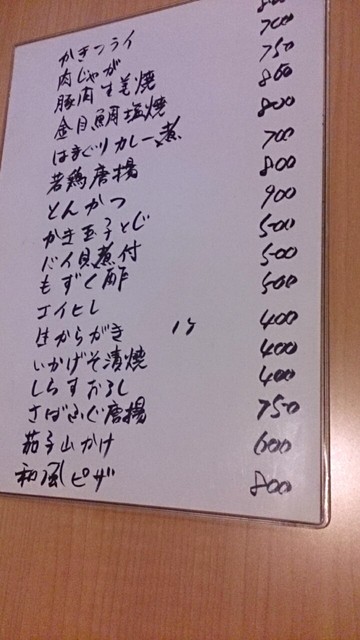 かきフライ
肉じゃが 700
豚肉生姜焼 750
金目鯛塩焼 800
はまぐりカレー煮 800
若鶏唐揚 700
とんかつ 800
かき玉子とじ 900
バイ貝煮付 500
もずく酢 500
エイヒレ 500
生からがき 1ヶ 400
いかげそ漬焼 400
しらすおろし 400
さばふぐ唐揚 750
茄子山かけ 600
和風ピザ 800